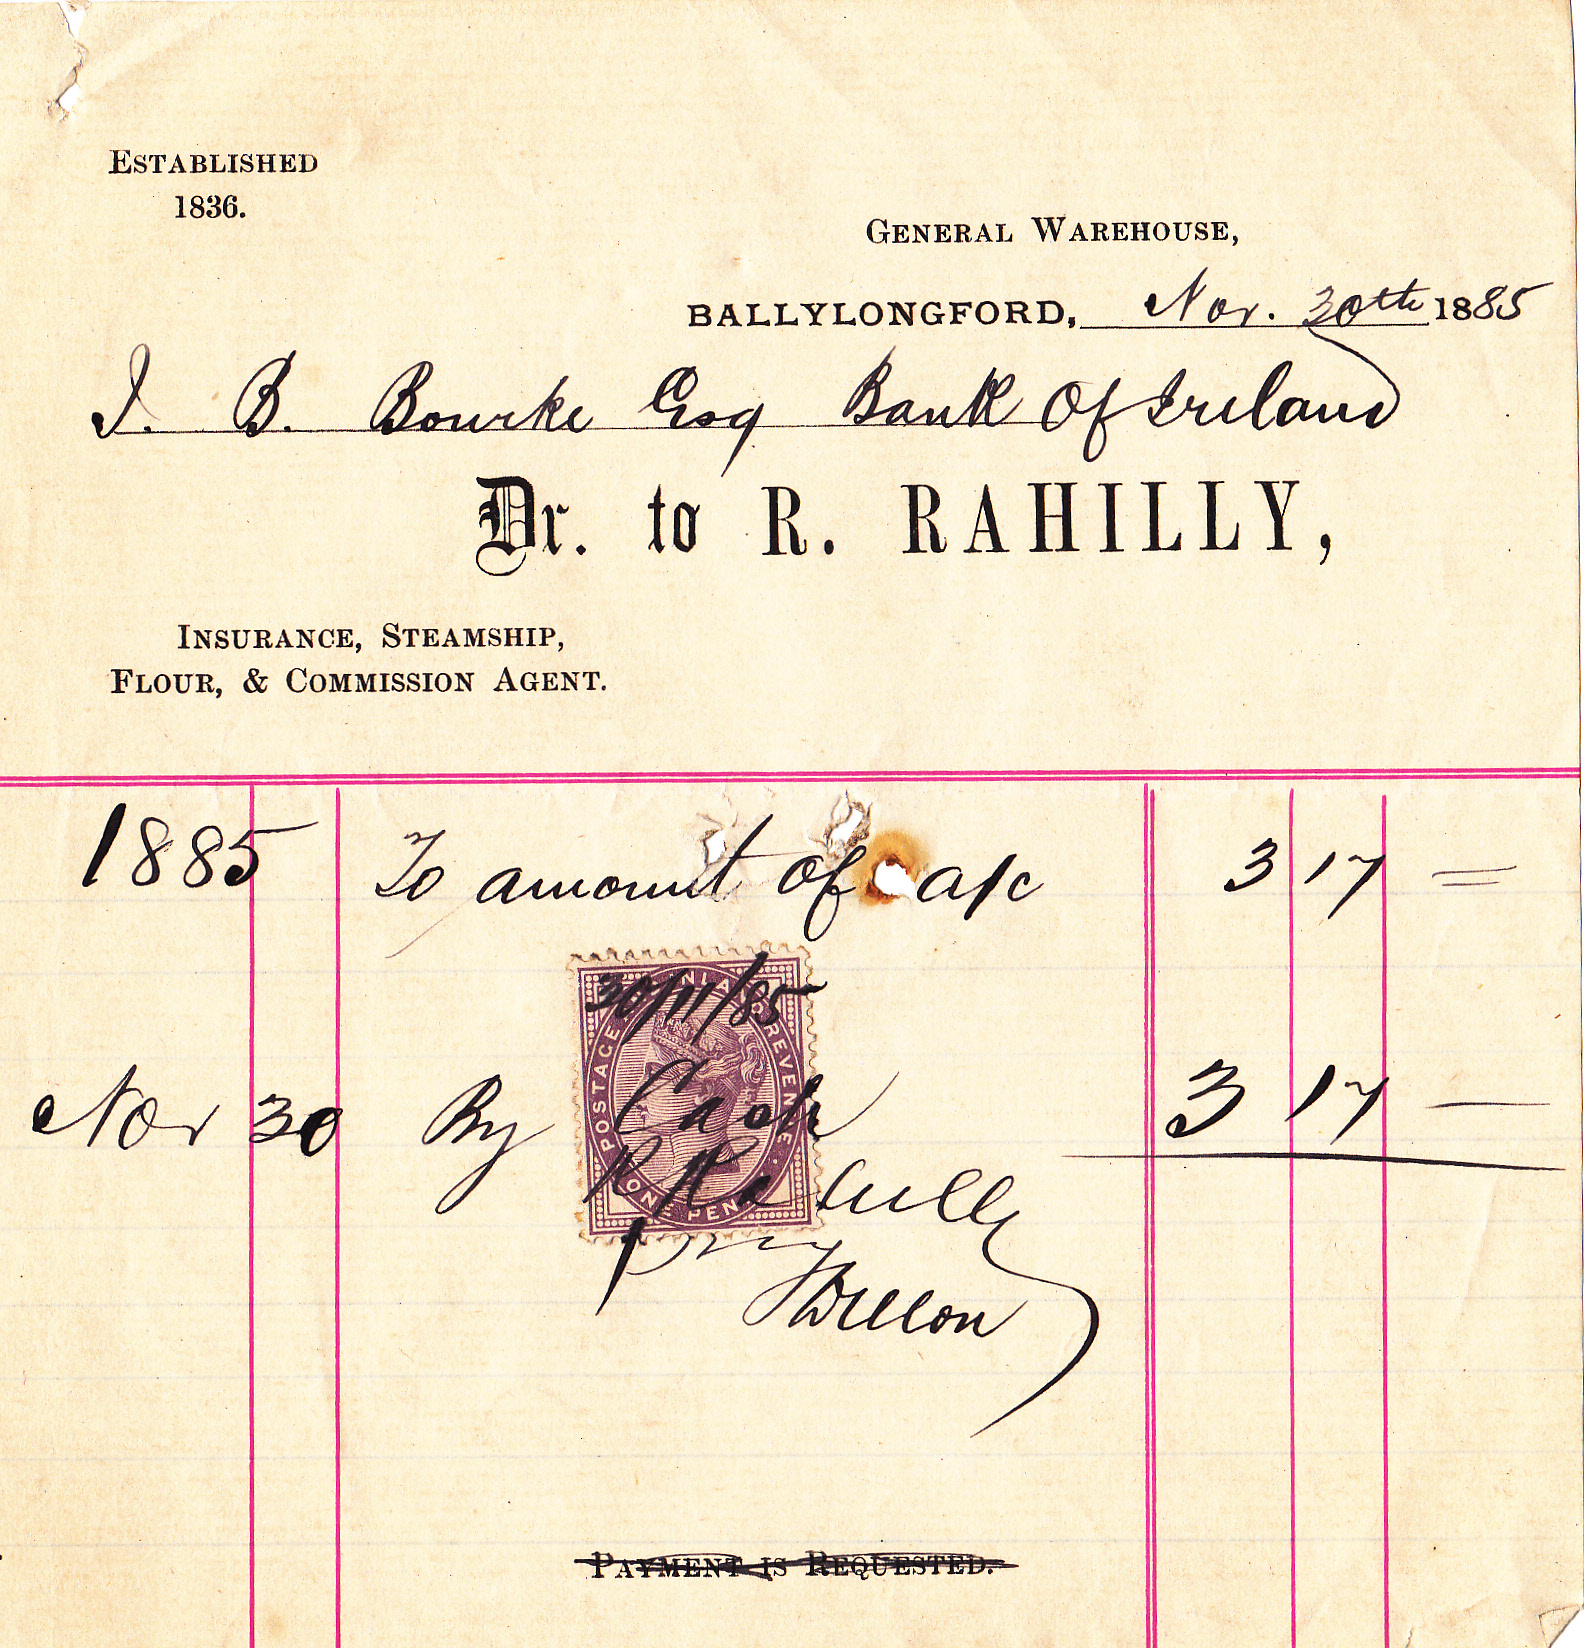 ESTABLISHED
1836.
GENERAL WAREHOUSE,
BALLYLONGFORD, Nov. 30th 1885
J. B. Bourke Esq Bank Of Ireland
Dr. to R. RAHILLY,
INSURANCE, STEAMSHIP,
FLOUR, & COMMISSION AGENT.
1885 To amount of a/c 3 17 =
30/11/85
POSTAGE AND INLAND REVENUE
Nov 30 By Cash 3 17 —
R Rahilly
ONE PENNY
Dillon
PAYMENT IS REQUESTED.